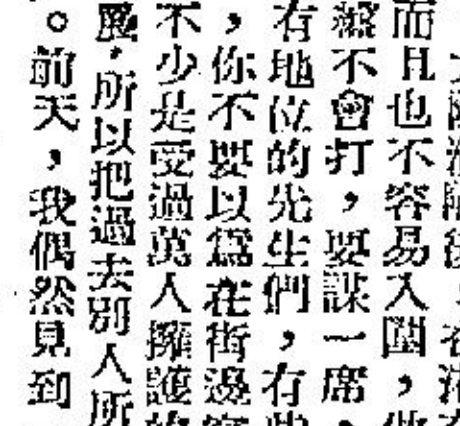 而且也不容易入圍，做
不會打，要謀一席
有地位的先生們，有些
，你不要以爲在街邊
不少是受過萬人擁護的
展，所以把過去別人所
。前天，我偶然見到